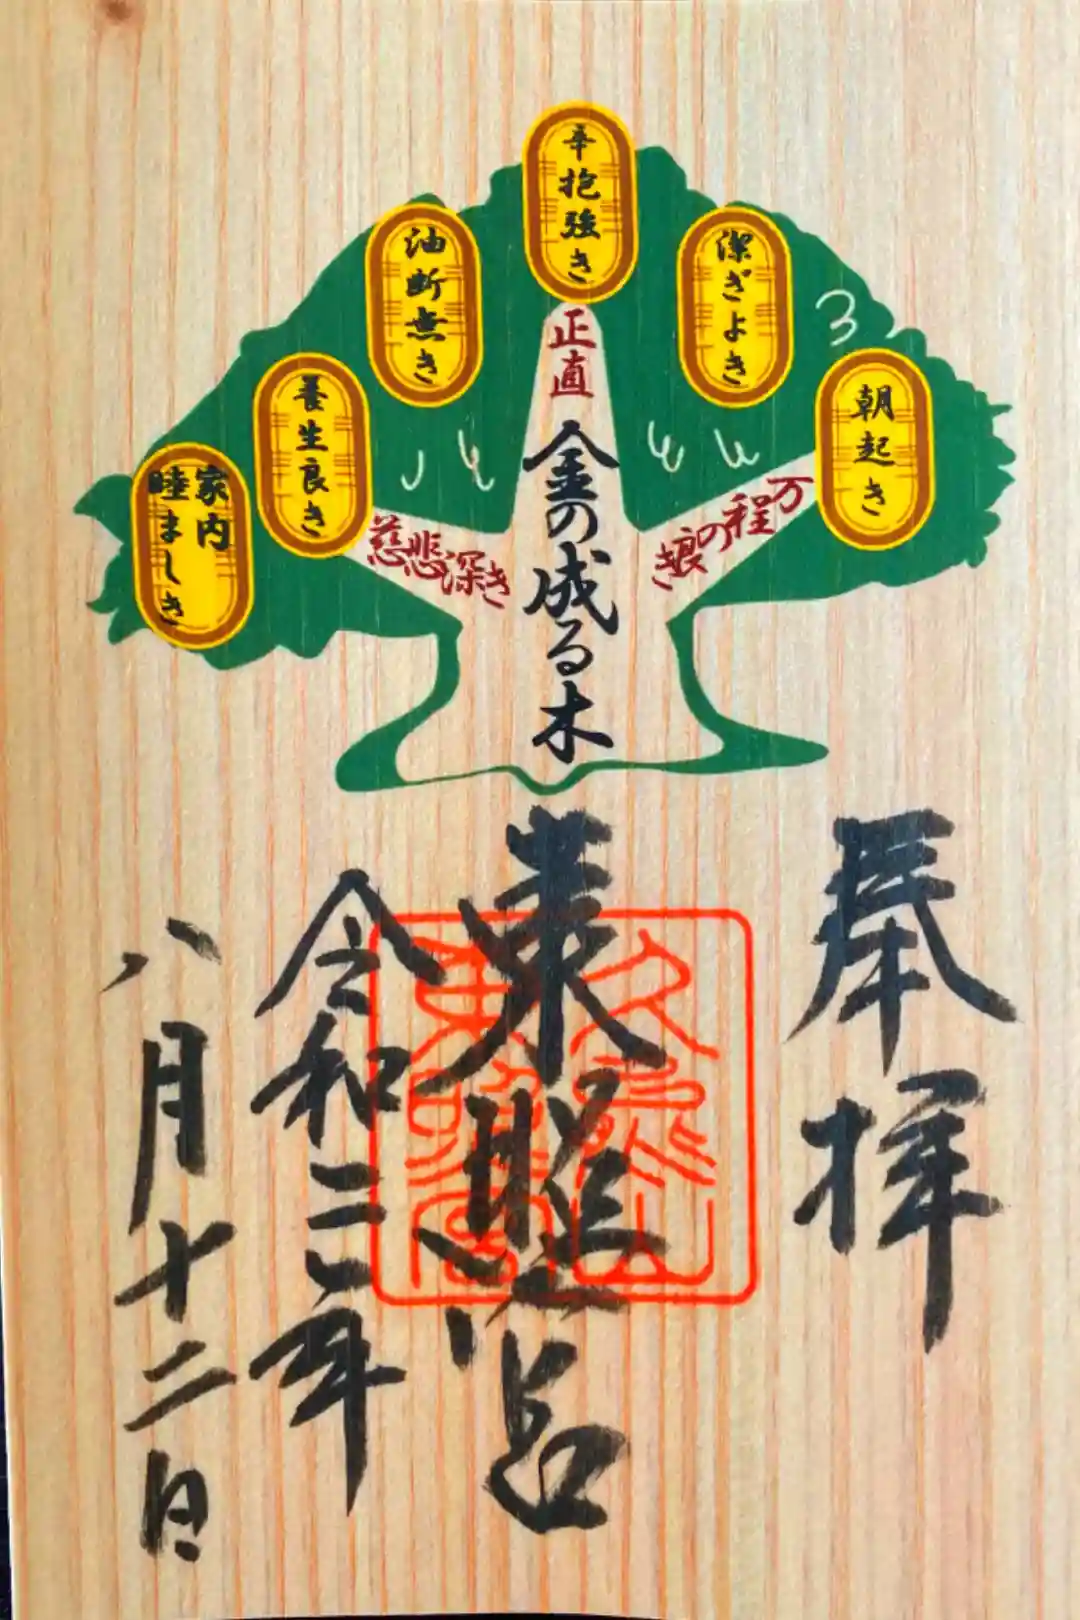 朝起き
潔ぎよき
辛抱強き
油断無き
養生良き
家内
睦ましき
万程の良き
正直
慈悲深き
金の成る木
奉拝
東照宮
令和二年
八月十二日